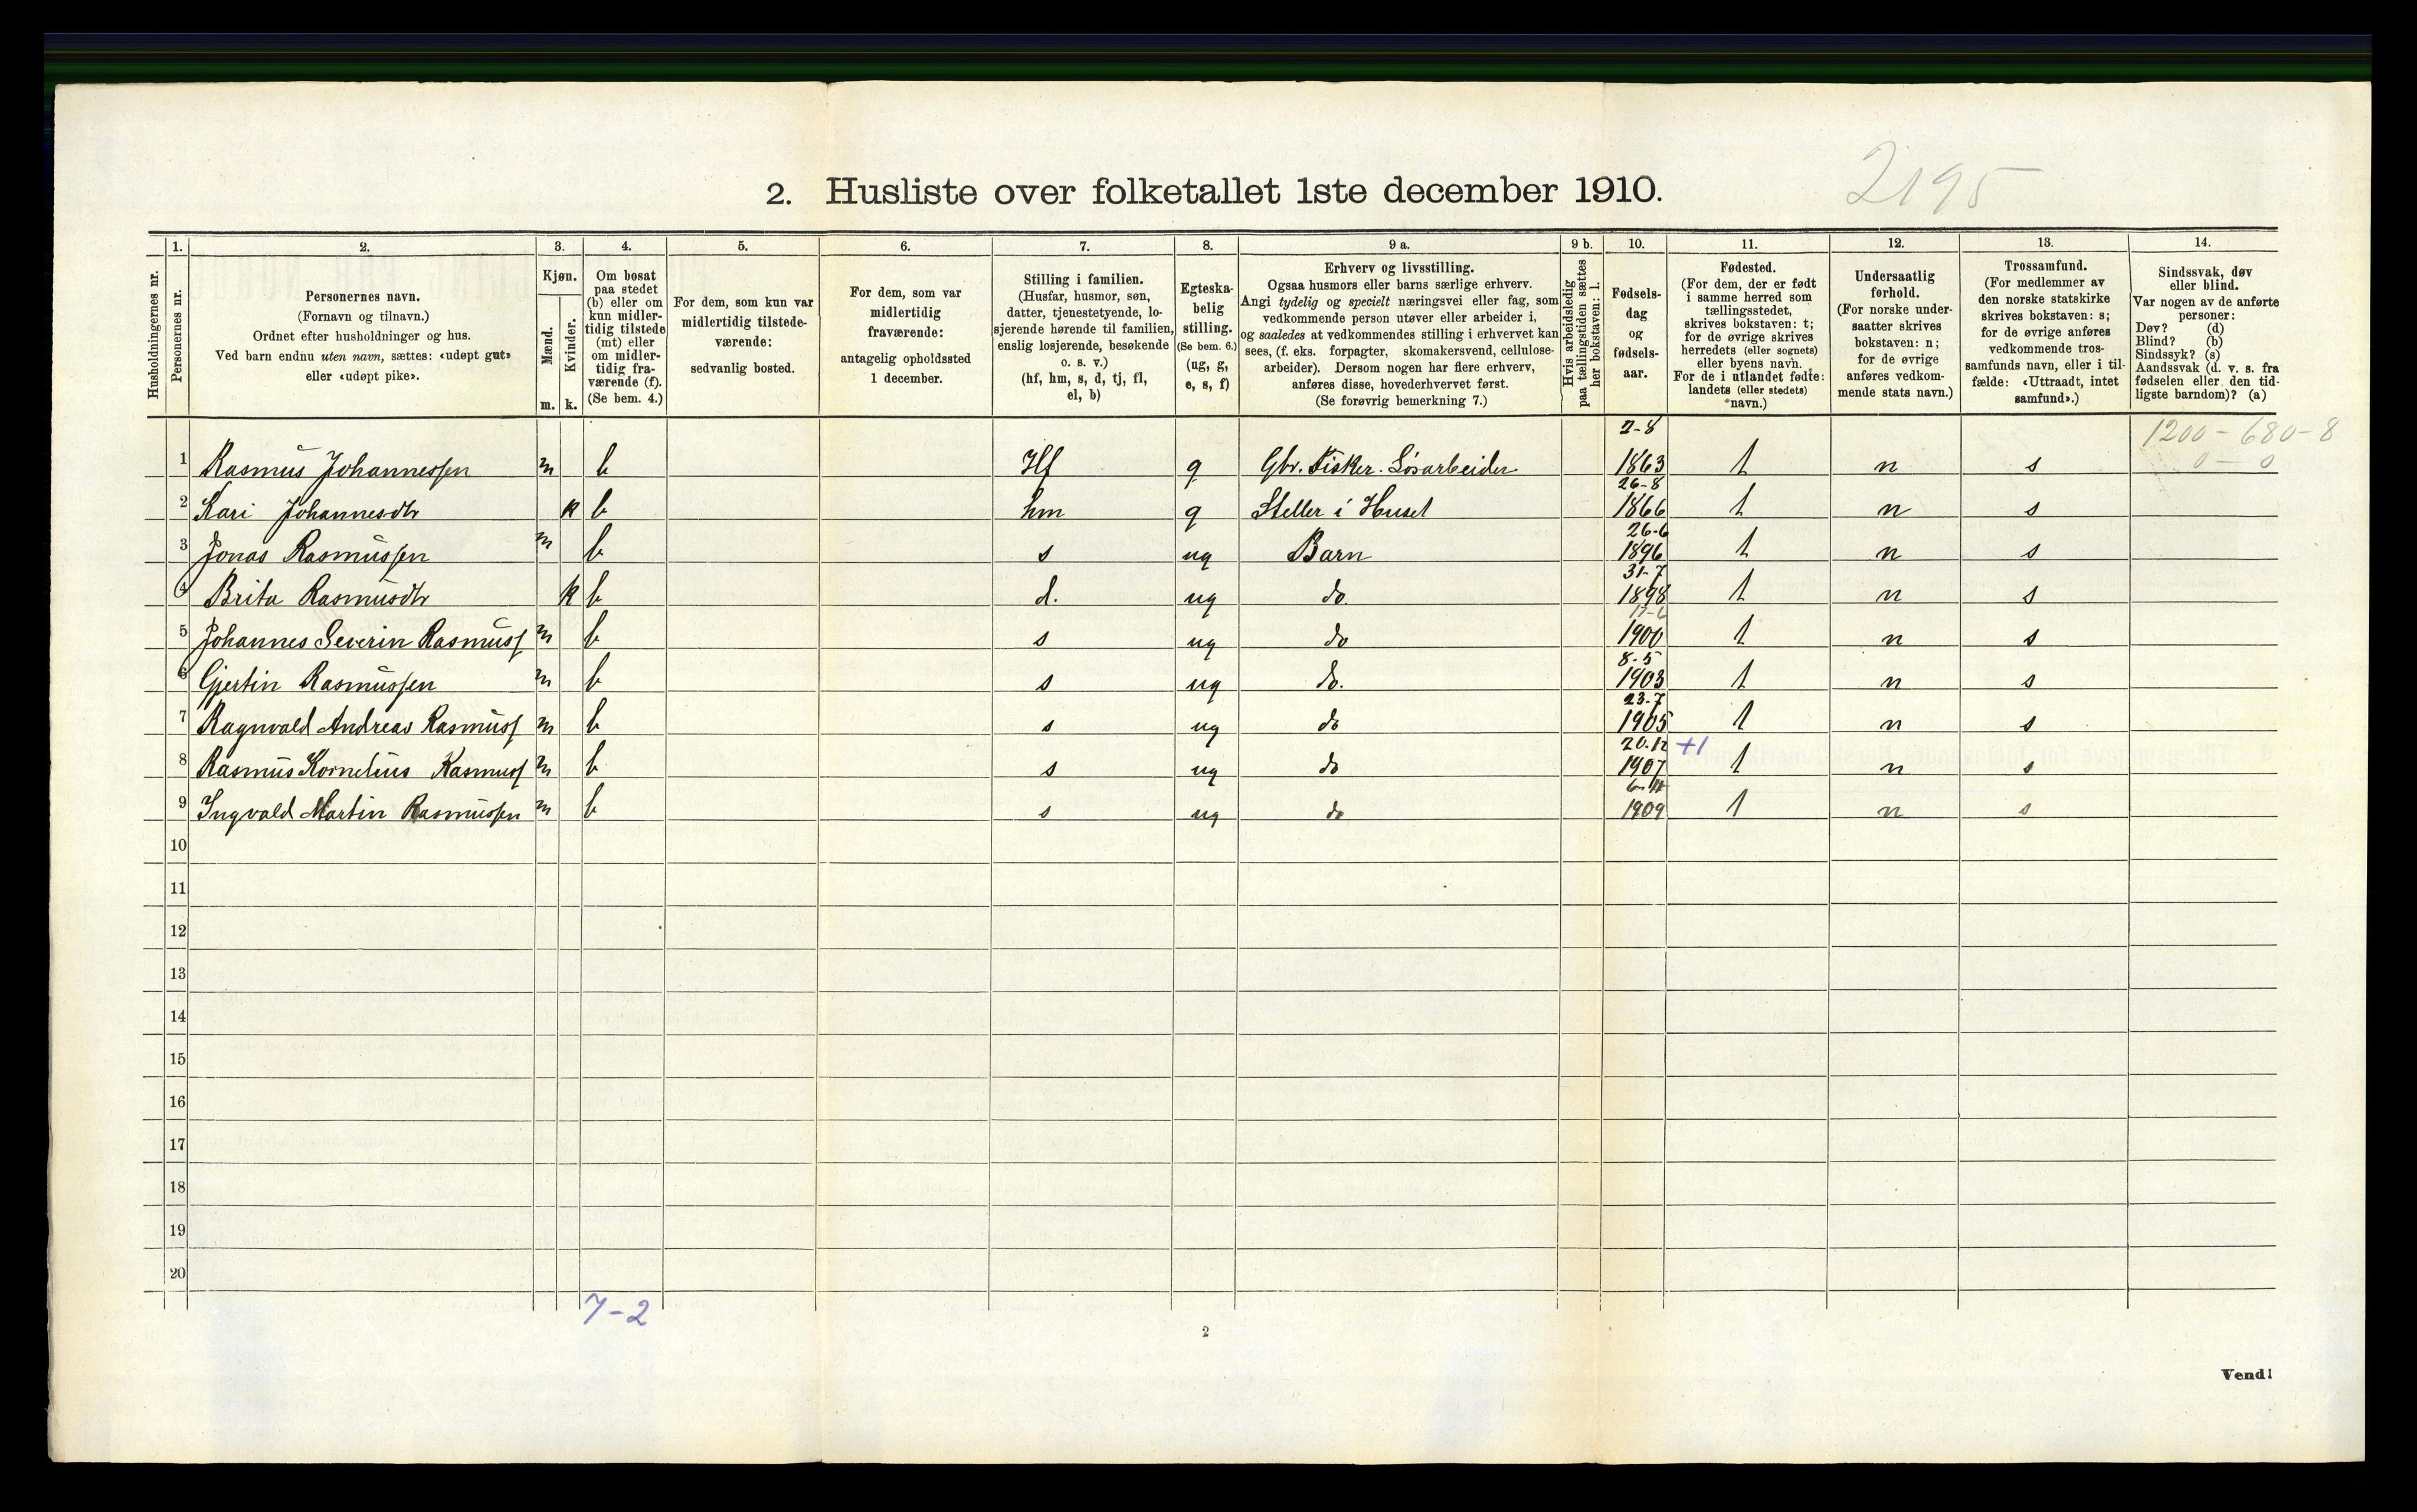 2195
2. Husliste over folketallet 1ste december 1910.
1. 2. 3. 4. 5. 6. 7. 8. 9 a. 9 b. 10. 11. 12. 13. 14.
Husholdningernes nr.
Personernes nr.
Personernes navn.
(Fornavn og tilnavn.)
Ordnet efter husholdninger og hus.
Ved barn endnu uten navn, sættes: «udøpt gut»
eller «udøpt pike».
Kjøn.
Mænd.
Kvinder.
m. k.
Om bosat
paa stedet
(b) eller om
kun midler-
tidig tilstede
(mt) eller
om midler-
tidig fra-
værende (f).
(Se bem. 4.)
For dem, som kun var
midlertidig tilstede-
værende:
sedvanlig bosted.
For dem, som var
midlertidig
fraværende:
antagelig opholdssted
1 december.
Stilling i familien.
(Husfar, husmor, søn,
datter, tjenestetyende, lo-
sjerende hørende til familien,
enslig losjerende, besøkende
o. s. v.)
(hf, hm, s, d, tj, fl,
el, b)
Egteska-
belig
stilling.
(Se bem. 6.)
(ug, g,
e, s, f)
Erhverv og livsstilling.
Ogsaa husmors eller barns særlige erhverv.
Angi tydelig og specielt næringsvei eller fag, som
vedkommende person utøver eller arbeider i,
og saaledes at vedkommendes stilling i erhvervet kan
sees, (f. eks. forpagter, skomakersvend, cellulose-
arbeider). Dersom nogen har flere erhverv,
anføres disse, hovederhvervet først.
(Se forøvrig bemerkning 7.)
Hvis arbeidsledig
paa tællingstiden sættes
her bokstaven: l.
Fødsels-
dag
og
fødsels-
aar.
Fødested.
(For dem, der er født
i samme herred som
tællingsstedet,
skrives bokstaven: t;
for de øvrige skrives
herredets (eller sognets)
eller byens navn.
For de i utlandet fødte:
landets (eller stedets)
navn.)
Undersaatlig
forhold.
(For norske under-
saatter skrives
bokstaven: n;
for de øvrige
anføres vedkom-
mende stats navn.)
Trossamfund.
(For medlemmer av
den norske statskirke
skrives bokstaven: s;
for de øvrige anføres
vedkommende tros-
samfunds navn, eller i til-
fælde: «Uttraadt, intet
samfund».)
Sindssvak, døv
eller blind.
Var nogen av de anførte
personer:
Døv? (d)
Blind? (b)
Sindssyk? (s)
Aandssvak (d. v. s. fra
fødselen eller den tid-
ligste barndom)? (a)
1200 - 680 - 8
0 - 0
1 Rasmus Johannessen m b Hf g Gbr. Fisker. Løsarbeider 2-8 1863 t n s
2 Kari Johannesdtr k b hm g Steller i Huset 26-8 1866 t n s
3 Jonas Rasmussen m b s ug Barn 26-6 1896 t n s
4 Brita Rasmusdtr k b d. ug do. 31-7 1898 t n s
5 Johannes Severin Rasmuss m b s ug do 1900 t n s
6 Gjertin Rasmussen m b s ug do. 8-5 1903 t n s
7 Ragnvald Andreas Rasmuss m b s ug do 23-7 1905 t n s
8 Rasmus Kornelius Rasmuss m b s ug do 20.12 1907 +1 t n s
9 Ingvald Martin Rasmussen m b s ug do 1909 t n s
10
11
12
13
14
15
16
17
18
19
20
7-2
2
Vend!